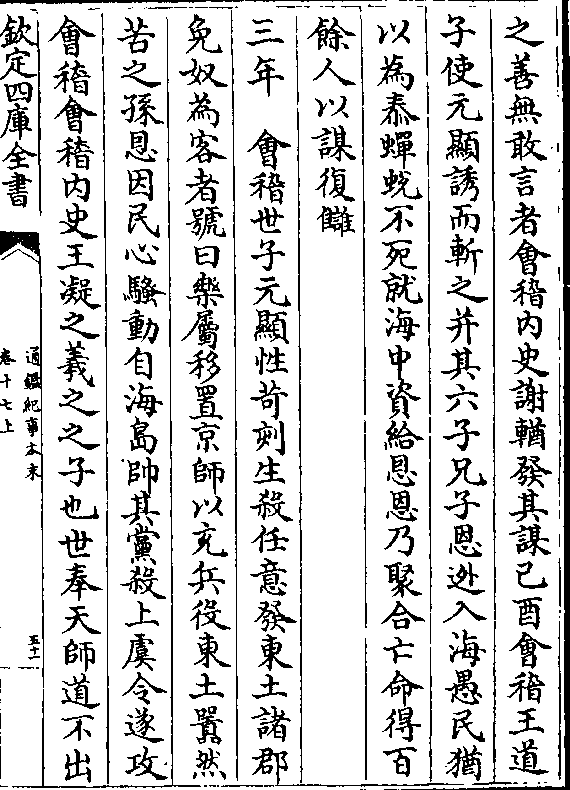 之善無敢言者會稽内史謝輶發其謀己酉會稽王道
子使元顯誘而斬之并其六子兄子恩逃入海愚民猶
以為泰蟬蜕不死就海中資給恩恩乃聚合亡命得百
餘人以謀復讎
三年　會稽世子元顯性苛刻生殺任意發東土諸郡
免奴為客者號曰樂屬移置京師以充兵役東土囂然
苦之孫恩因民心騷動自海島帥其黨殺上虞令遂攻
會稽會稽内史王凝之羲之之子也世奉天師道不出
欽定四庫全書
通鑑紀事本末
卷十七上
五十